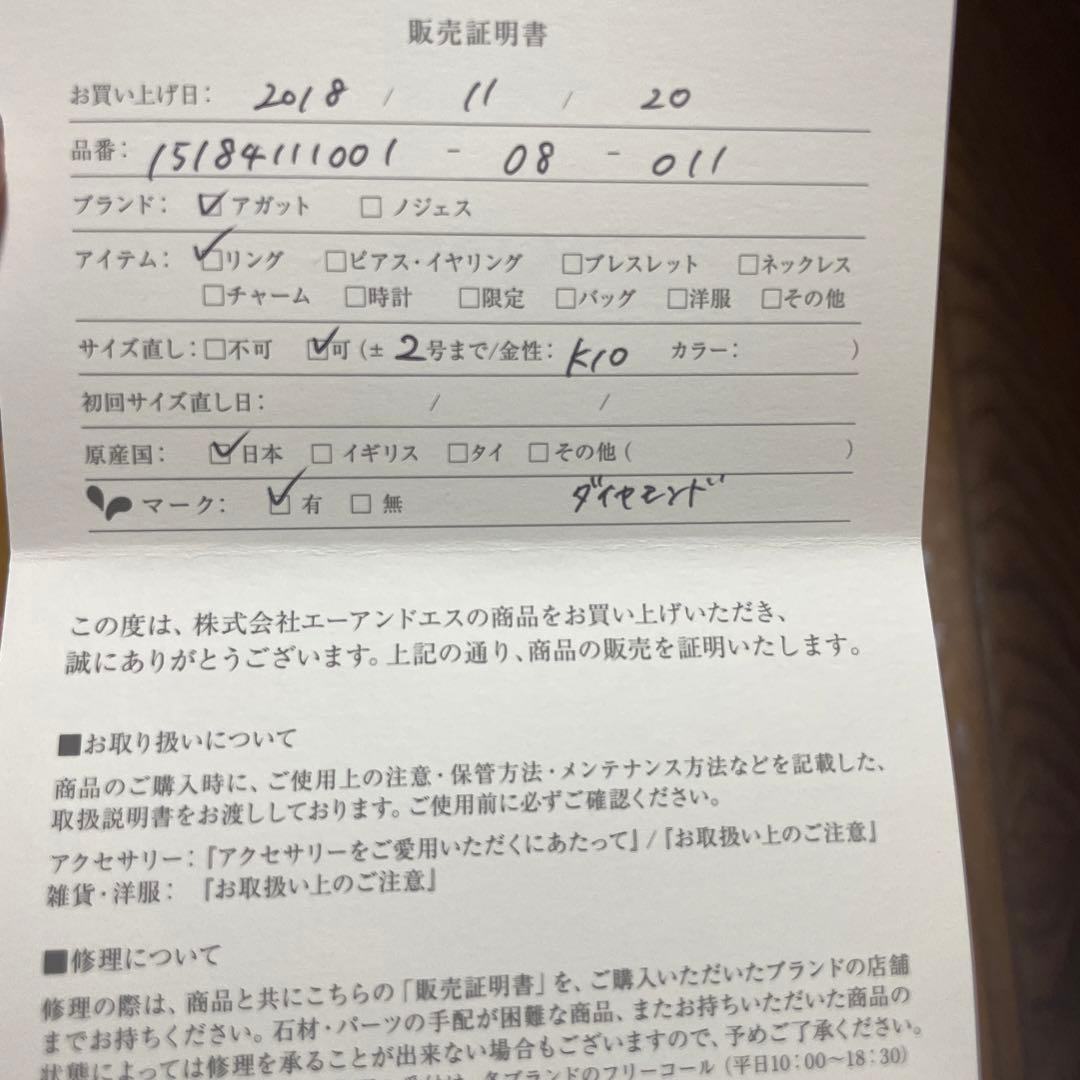 販売証明書
お買い上げ日： 2018 / 11 / 20
品番： 15184111001 - 08 - 011
ブランド： ☑アガット □ノジェス
アイテム： ☑リング □ピアス・イヤリング □ブレスレット □ネックレス
□チャーム □時計 □限定 □バッグ □洋服 □その他
サイズ直し：□不可 ☑可（± 2号まで/金性： K10 カラー： ）
初回サイズ直し日： / /
原産国： ☑日本 □イギリス □タイ □その他（ ）
マーク： ☑有 □無 ダイヤモンド
この度は、株式会社エーアンドエスの商品をお買い上げいただき、
誠にありがとうございます。上記の通り、商品の販売を証明いたします。
■お取り扱いについて
商品のご購入時に、ご使用上の注意・保管方法・メンテナンス方法などを記載した、
取扱説明書をお渡ししております。ご使用前に必ずご確認ください。
アクセサリー：『アクセサリーをご愛用いただくにあたって』/『お取扱い上のご注意』
雑貨・洋服： 『お取扱い上のご注意』
■修理について
修理の際は、商品と共にこちらの「販売証明書」を、ご購入いただいたブランドの店舗
までお持ちください。石材・パーツの手配が困難な商品、またお持ちいただいた商品の
状態によっては修理を承ることが出来ない場合もございますので、予めご了承ください。
各ブランドのフリーコール（平日10：00〜18：30）